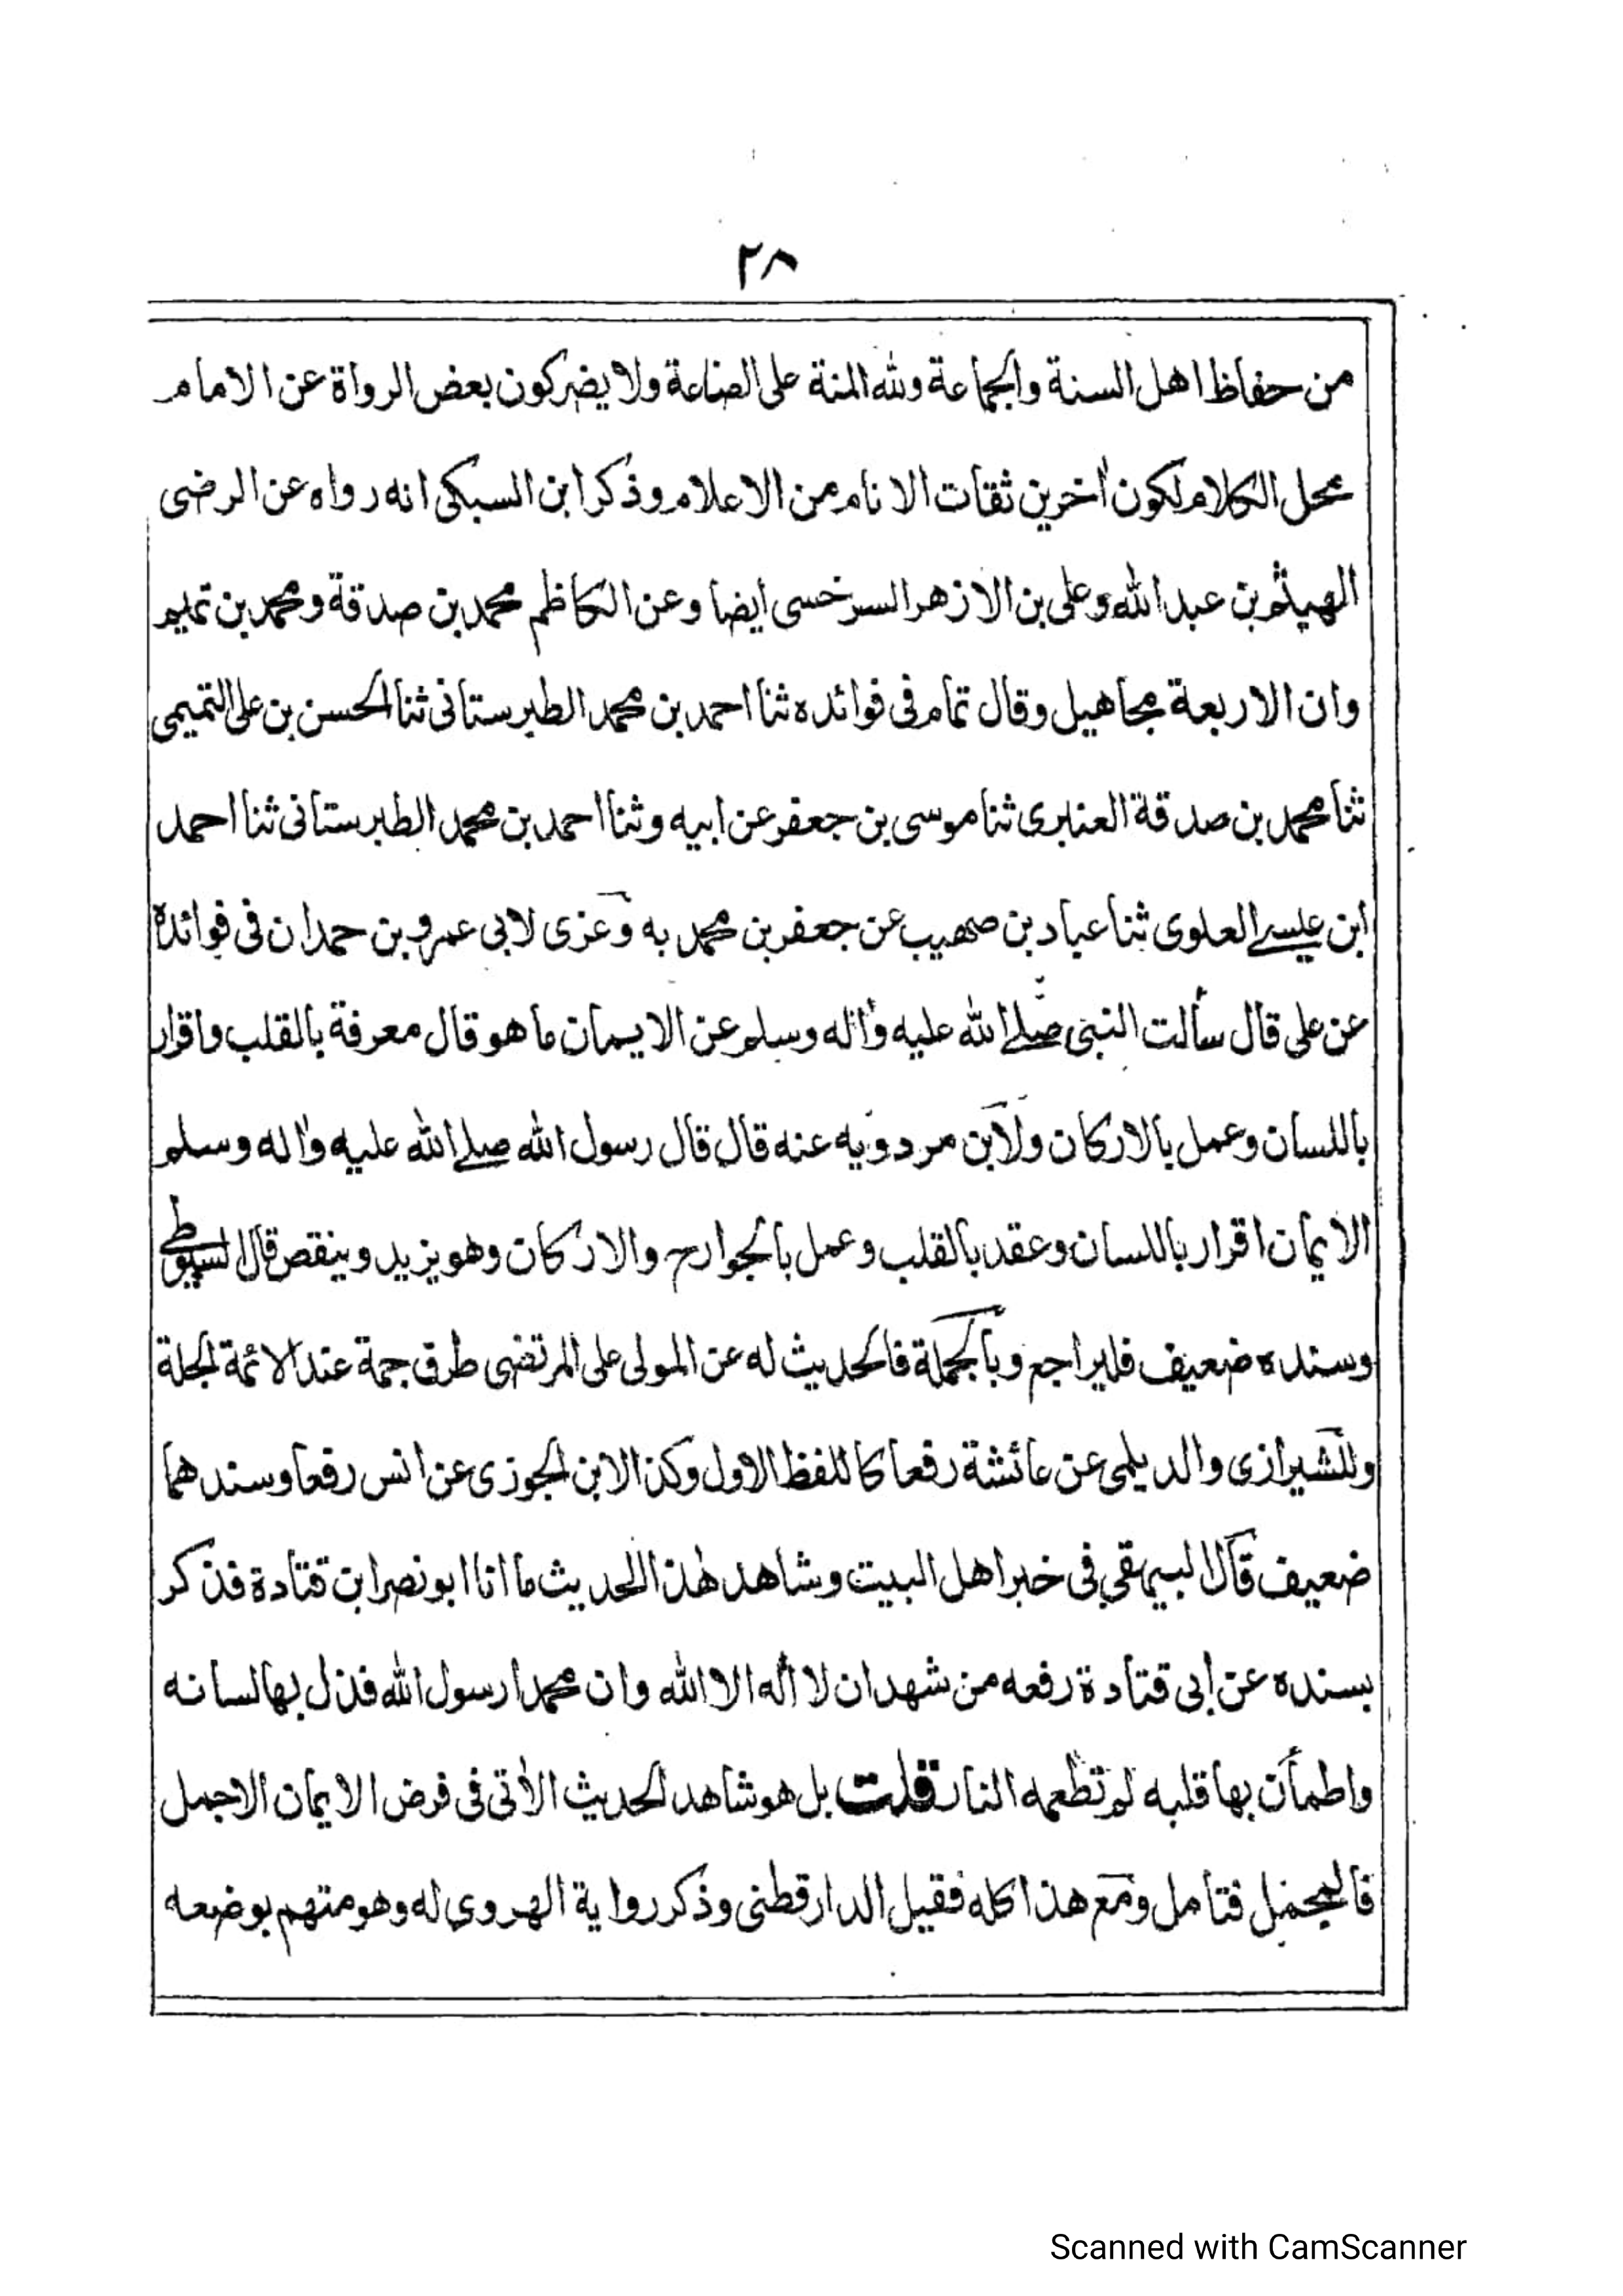 ٢٨
من حفاظ اهل السنة والجماعة ولله المنة على الصناعة ولا يضر كون بعض الرواة عن الامام
محل الكلام لكون اٰخرين ثقات الانام من الاعلام وذكر ابن السبكى انه رواه عن الرضى
الهيثم بن عبد الله وعلى بن الازهر السرخسى ايضا وعن الكاظم محمد بن صدقة ومحمد بن تميم
وان الاربعة مجاهيل وقال تمام فى فوائده ثنا احمد بن محمد الطبرستانى ثنا الحسن بن على التميمى
ثنا محمد بن صدقة العنابرى ثنا موسى بن جعفر عن ابيه وثنا احمد بن محمد الطبرستانى ثنا احمد
ابن عيسے العلوى ثنا عباد بن صهيب عن جعفر بن محمد به وعزى لابى عمرو بن حمدان فى فوائدة
عن على قال سألت النبى صلے الله عليه واٰله وسلم عن الايمان ما هو قال معرفة بالقلب واقرار
باللسان وعمل بالاركان ولابن مردويه عنه قال قال رسول الله صلے الله عليه واٰله وسلم
الايمان اقرار باللسان وعقد بالقلب وعمل بالجوارح والاركان وهو يزيد وينقص قال السيوطى
وسنده ضعيف فليراجع وبالجملة فالحديث له عن المولى على المرتضى طرق جمة عند الائمة الجلة
وللشيرازى والديلمى عن عائشة رفعا كاللفظ الاول وكذا لابن الجوزى عن انس رفعا وسندهما
ضعيف قال البيهقي فى خبر اهل البيت وشاهد لهٰذا الحديث ما انا ابو نصر ابن قتادة فذكر
بسنده عن ابى قتادة رفعه من شهد ان لا اله الا الله وان محمدا رسول الله فذل بها لسانه
واطمأن بها قلبه لم تطعمه النار قلت بل هو شاهد لحديث الاٰتى فى فرض الايمان الاجمل
فالمجمل فتأمل ومع هذا كله فقيل الدارقطنى وذكر رواية الهروى له وهو متهم بوضعه
Scanned with CamScanner